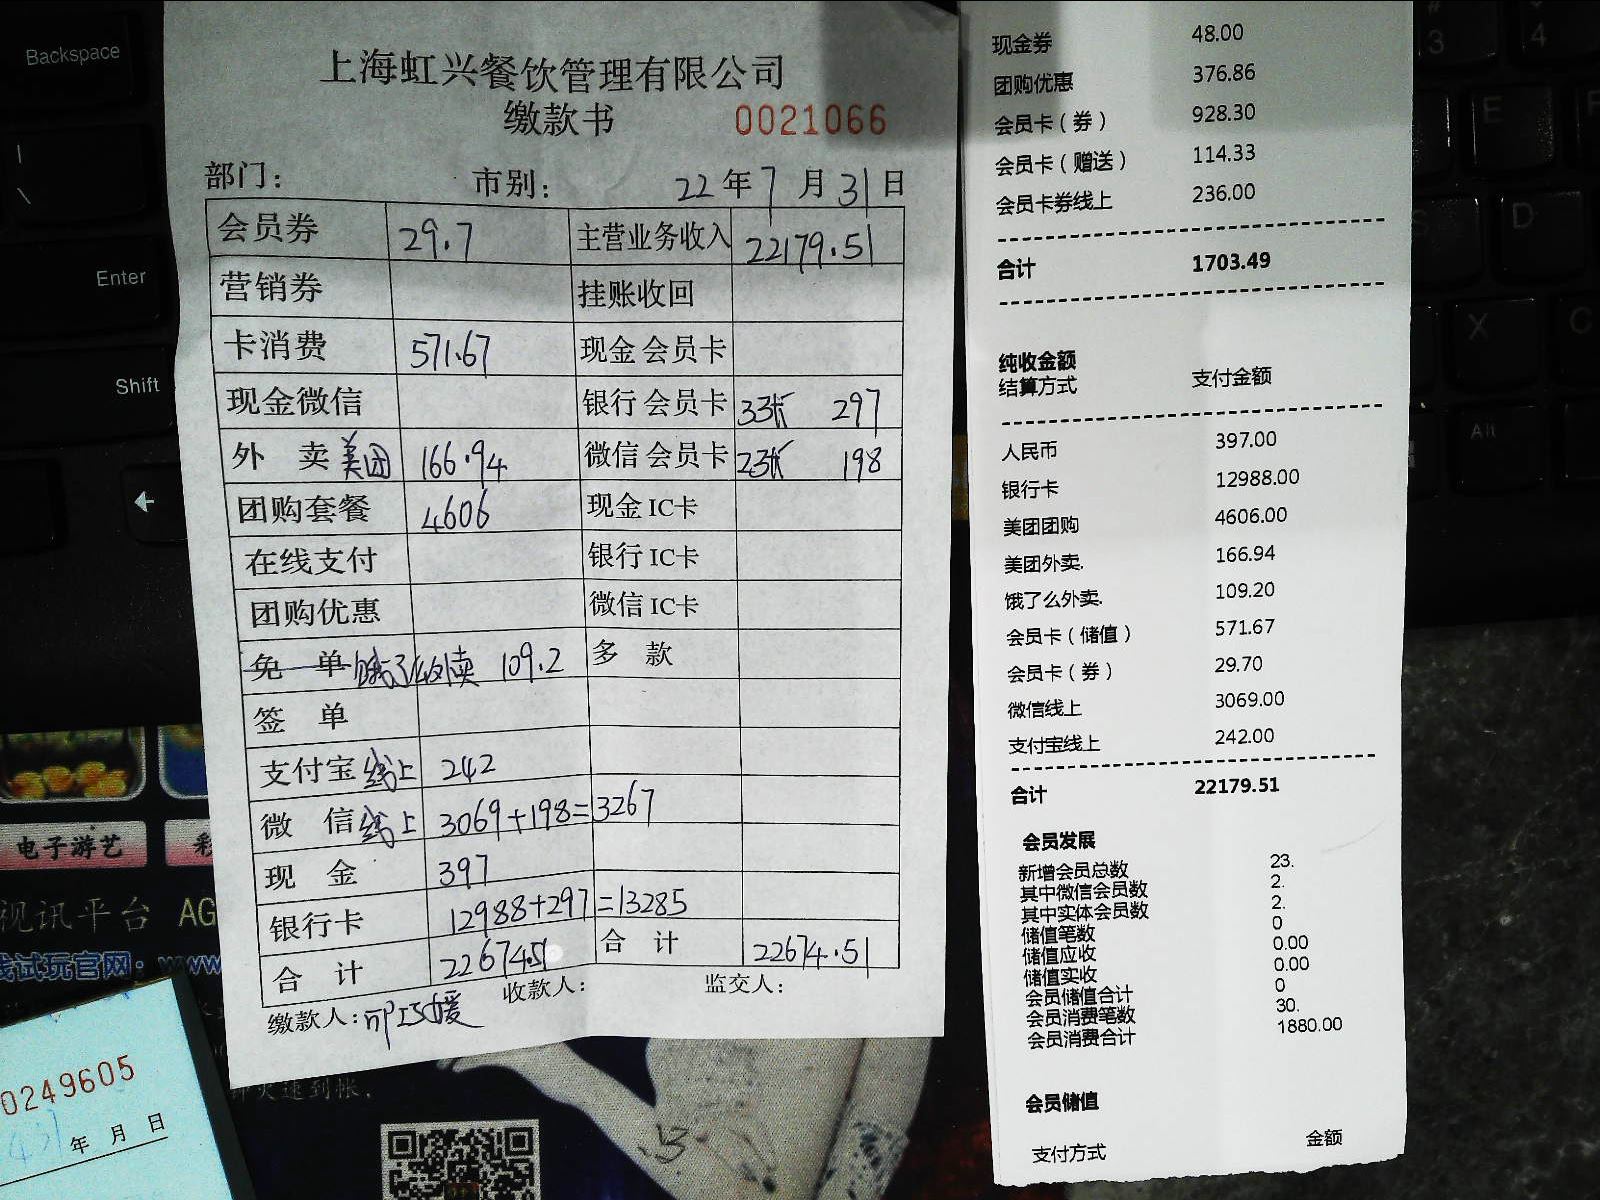 上海虹兴餐饮管理有限公司
缴款书
0021066
部门: 市别: 22 年 7 月 31 日
会员券 29.7 主营业务收入 22179.51
营销券 挂账收回
卡消费 571.67 现金会员卡
现金微信 银行会员卡 33张 297
外 卖 美团 166.94 微信会员卡 23张 198
团购套餐 4606 现金IC卡
在线支付 银行IC卡
团购优惠 微信IC卡
免 单 饿了么外卖 109.2 多 款
签 单
支付宝线上 242
微 信线上 3069+198=3267
现 金 397
银行卡 12988+297=13285
合 计 22674.51 合 计 22674.51
缴款人: 收款人: 监交人:
现金券 48.00
团购优惠 376.86
会员卡(券) 928.30
会员卡(赠送) 114.33
会员卡券线上 236.00
合计 1703.49
纯收金额
结算方式 支付金额
人民币 397.00
银行卡 12988.00
美团团购 4606.00
美团外卖. 166.94
饿了么外卖. 109.20
会员卡(储值) 571.67
会员卡(券) 29.70
微信线上 3069.00
支付宝线上 242.00
合计 22179.51
会员发展
新增会员总数 23.
其中微信会员数 2.
其中实体会员数 2.
储值笔数 0
储值应收 0.00
储值实收 0.00
会员储值合计 0
会员消费笔数 30.
会员消费合计 1880.00
会员储值
支付方式 金额
Backspace
|
\
Enter
Shift
#
3
4
E
D
X
C
Alt
电子游艺 彩
视讯平台 AG
线试玩官网: www
0249605
年 月 日